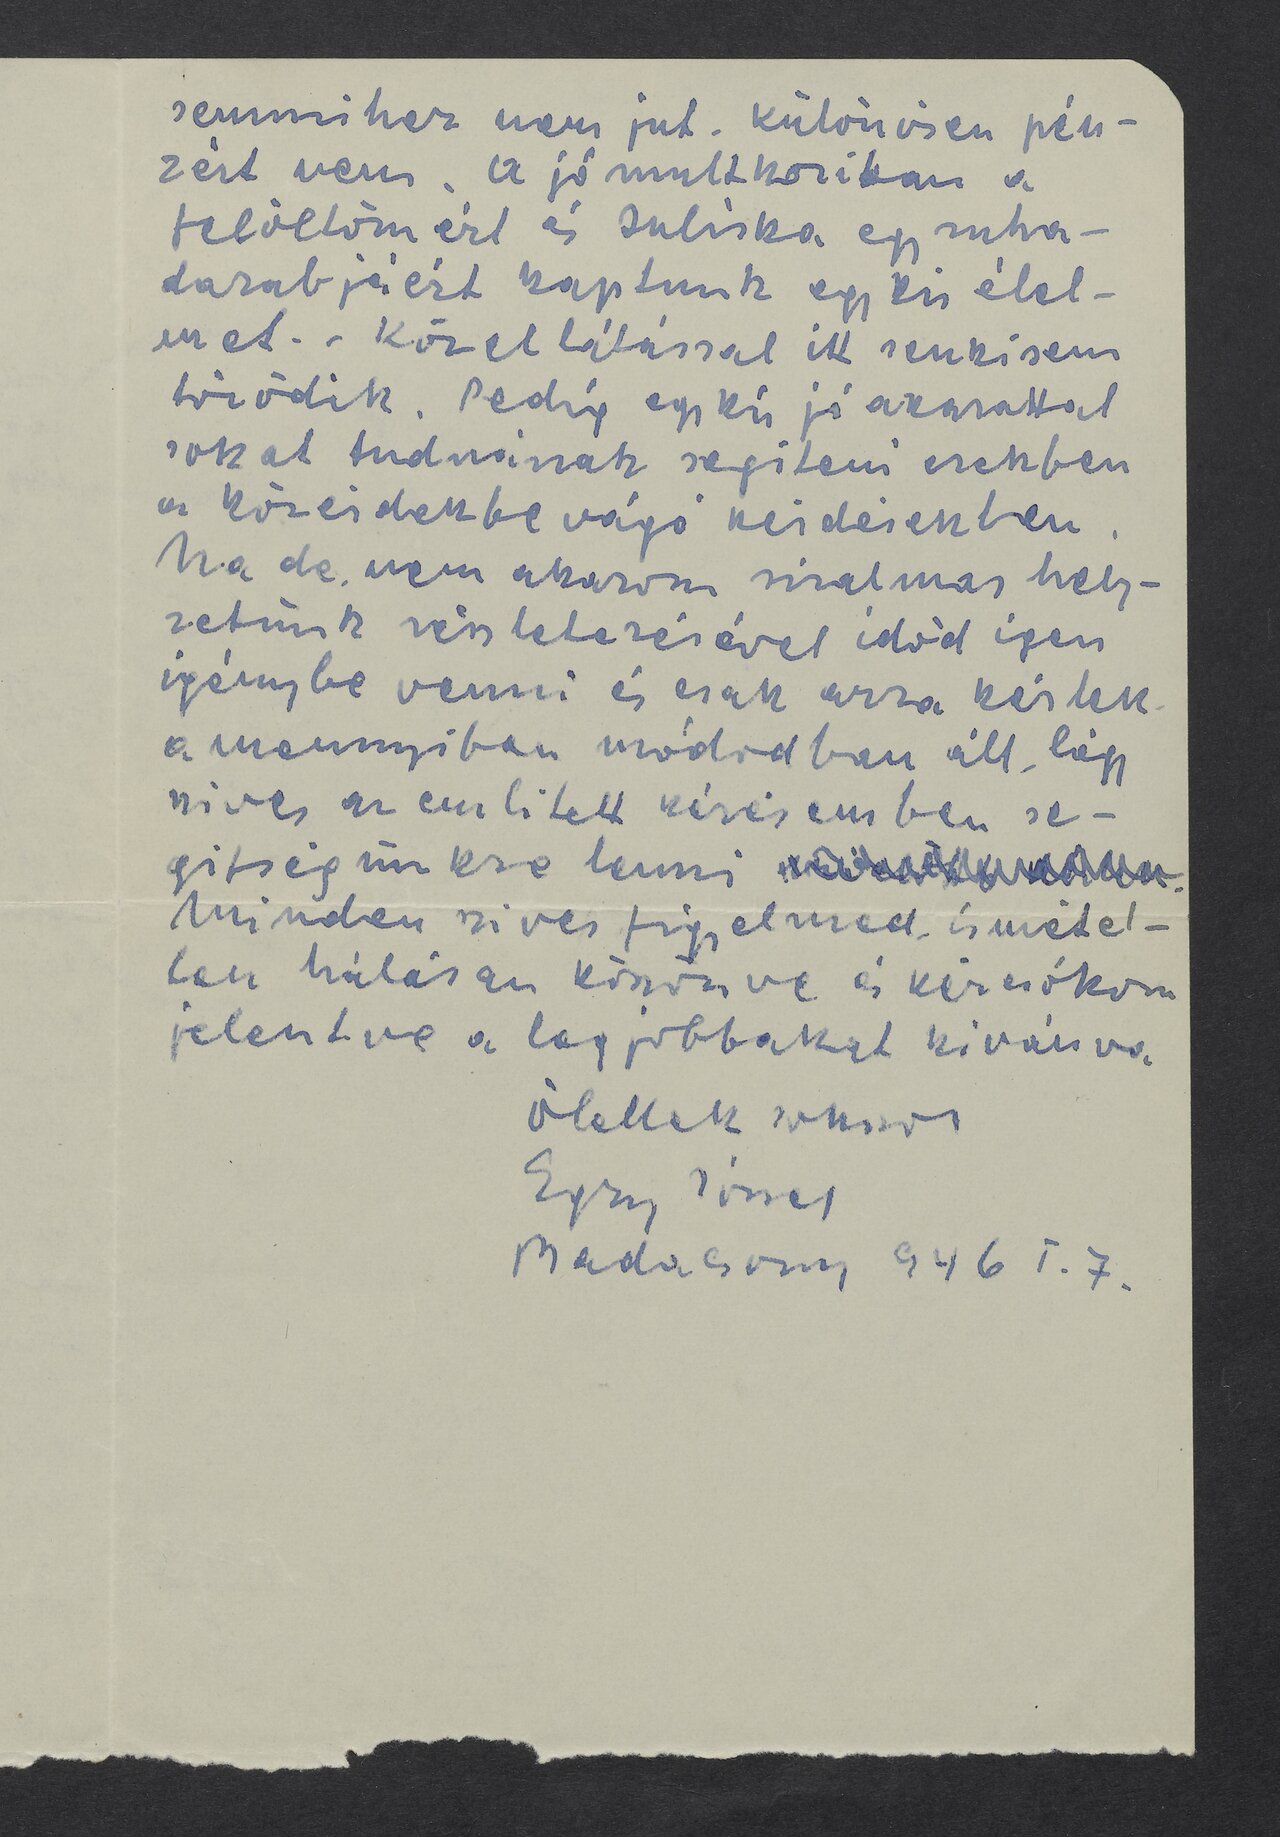 semmihez nem jut. különösen pén-
zért nem. A jó multkoriban a
felöltőmért és Juliska egy ruha-
darabjáért kaptunk egy kis élel-
met. - Közellátással itt senkisem
törődik. Pedíg egy kis jó akarattal
sokat tudnának segíteni ezekben
a közérdekbe vágó kérdésekben.
Na de, nem akarom siralmas hely-
zetünk részletezésével időd igen
igénybe venni és csak arra kérlek
amennyiben módodban áll, légy
szives az emlitett kérésemben se-
gitségünkre lenni
Minden szives figyelmed, ismétel-
ten hálásan köszönve és kézcsókom
jelentve a legjobbakat kivánva
Ölellek sokszor
Egry József
Badacsony 946 I. 7.